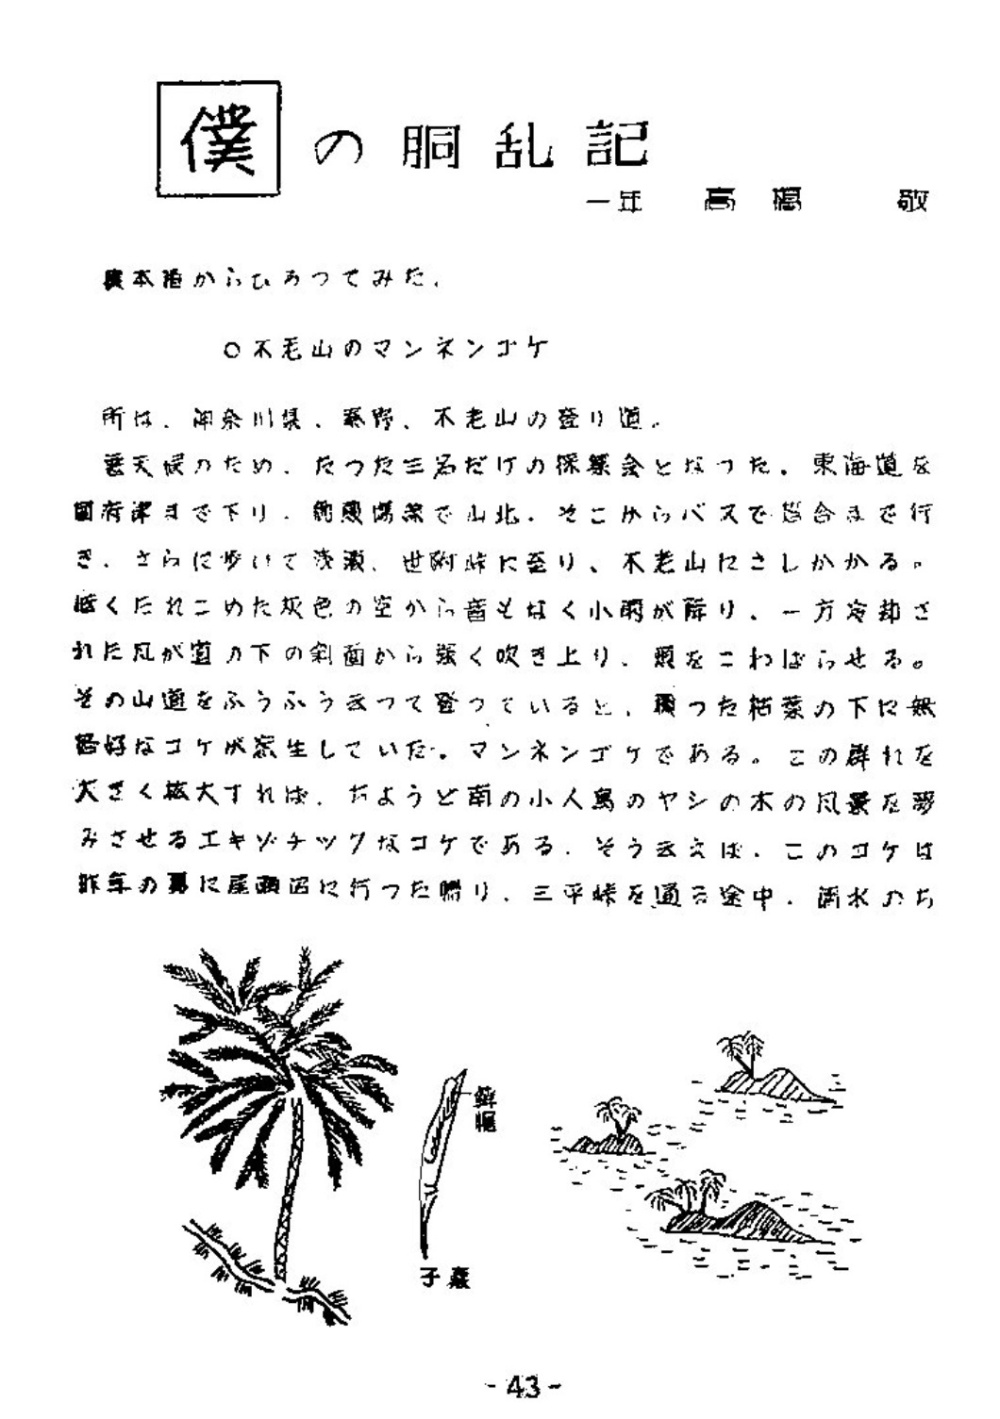 僕の胴乱記
一年 高橋 敬
標本箱からひろつてみた。
○不老山のマンネンゴケ
所は、神奈川県、秦野、不老山の登り道。
悪天候のため、たつた三名だけの採集会となつた。東海道を
国府津まで下り、御殿場線で山北、そこからバスで落合まで行
き、さらに歩いて浅瀬、世附峠に至り、不老山にさしかかる。
低くたれこめた灰色の空から音もなく小雨が降り、一方冷却さ
れた風が道の下の斜面から強く吹き上り、頬をこわばらせる。
その山道をふうふう云つて登つていると、積つた枯葉の下に無
恰好なコケが叢生していた。マンネンゴケである。この群れを
大きく拡大すれば、ちようど南の小人島のヤシの木の風景を夢
みさせるエキゾチツクなコケである。そう云えば、このコケは
昨年の夏に尾瀬沼に行つた帰り、三平峠を通る途中、清水のち
蘚帽
子嚢
-43-